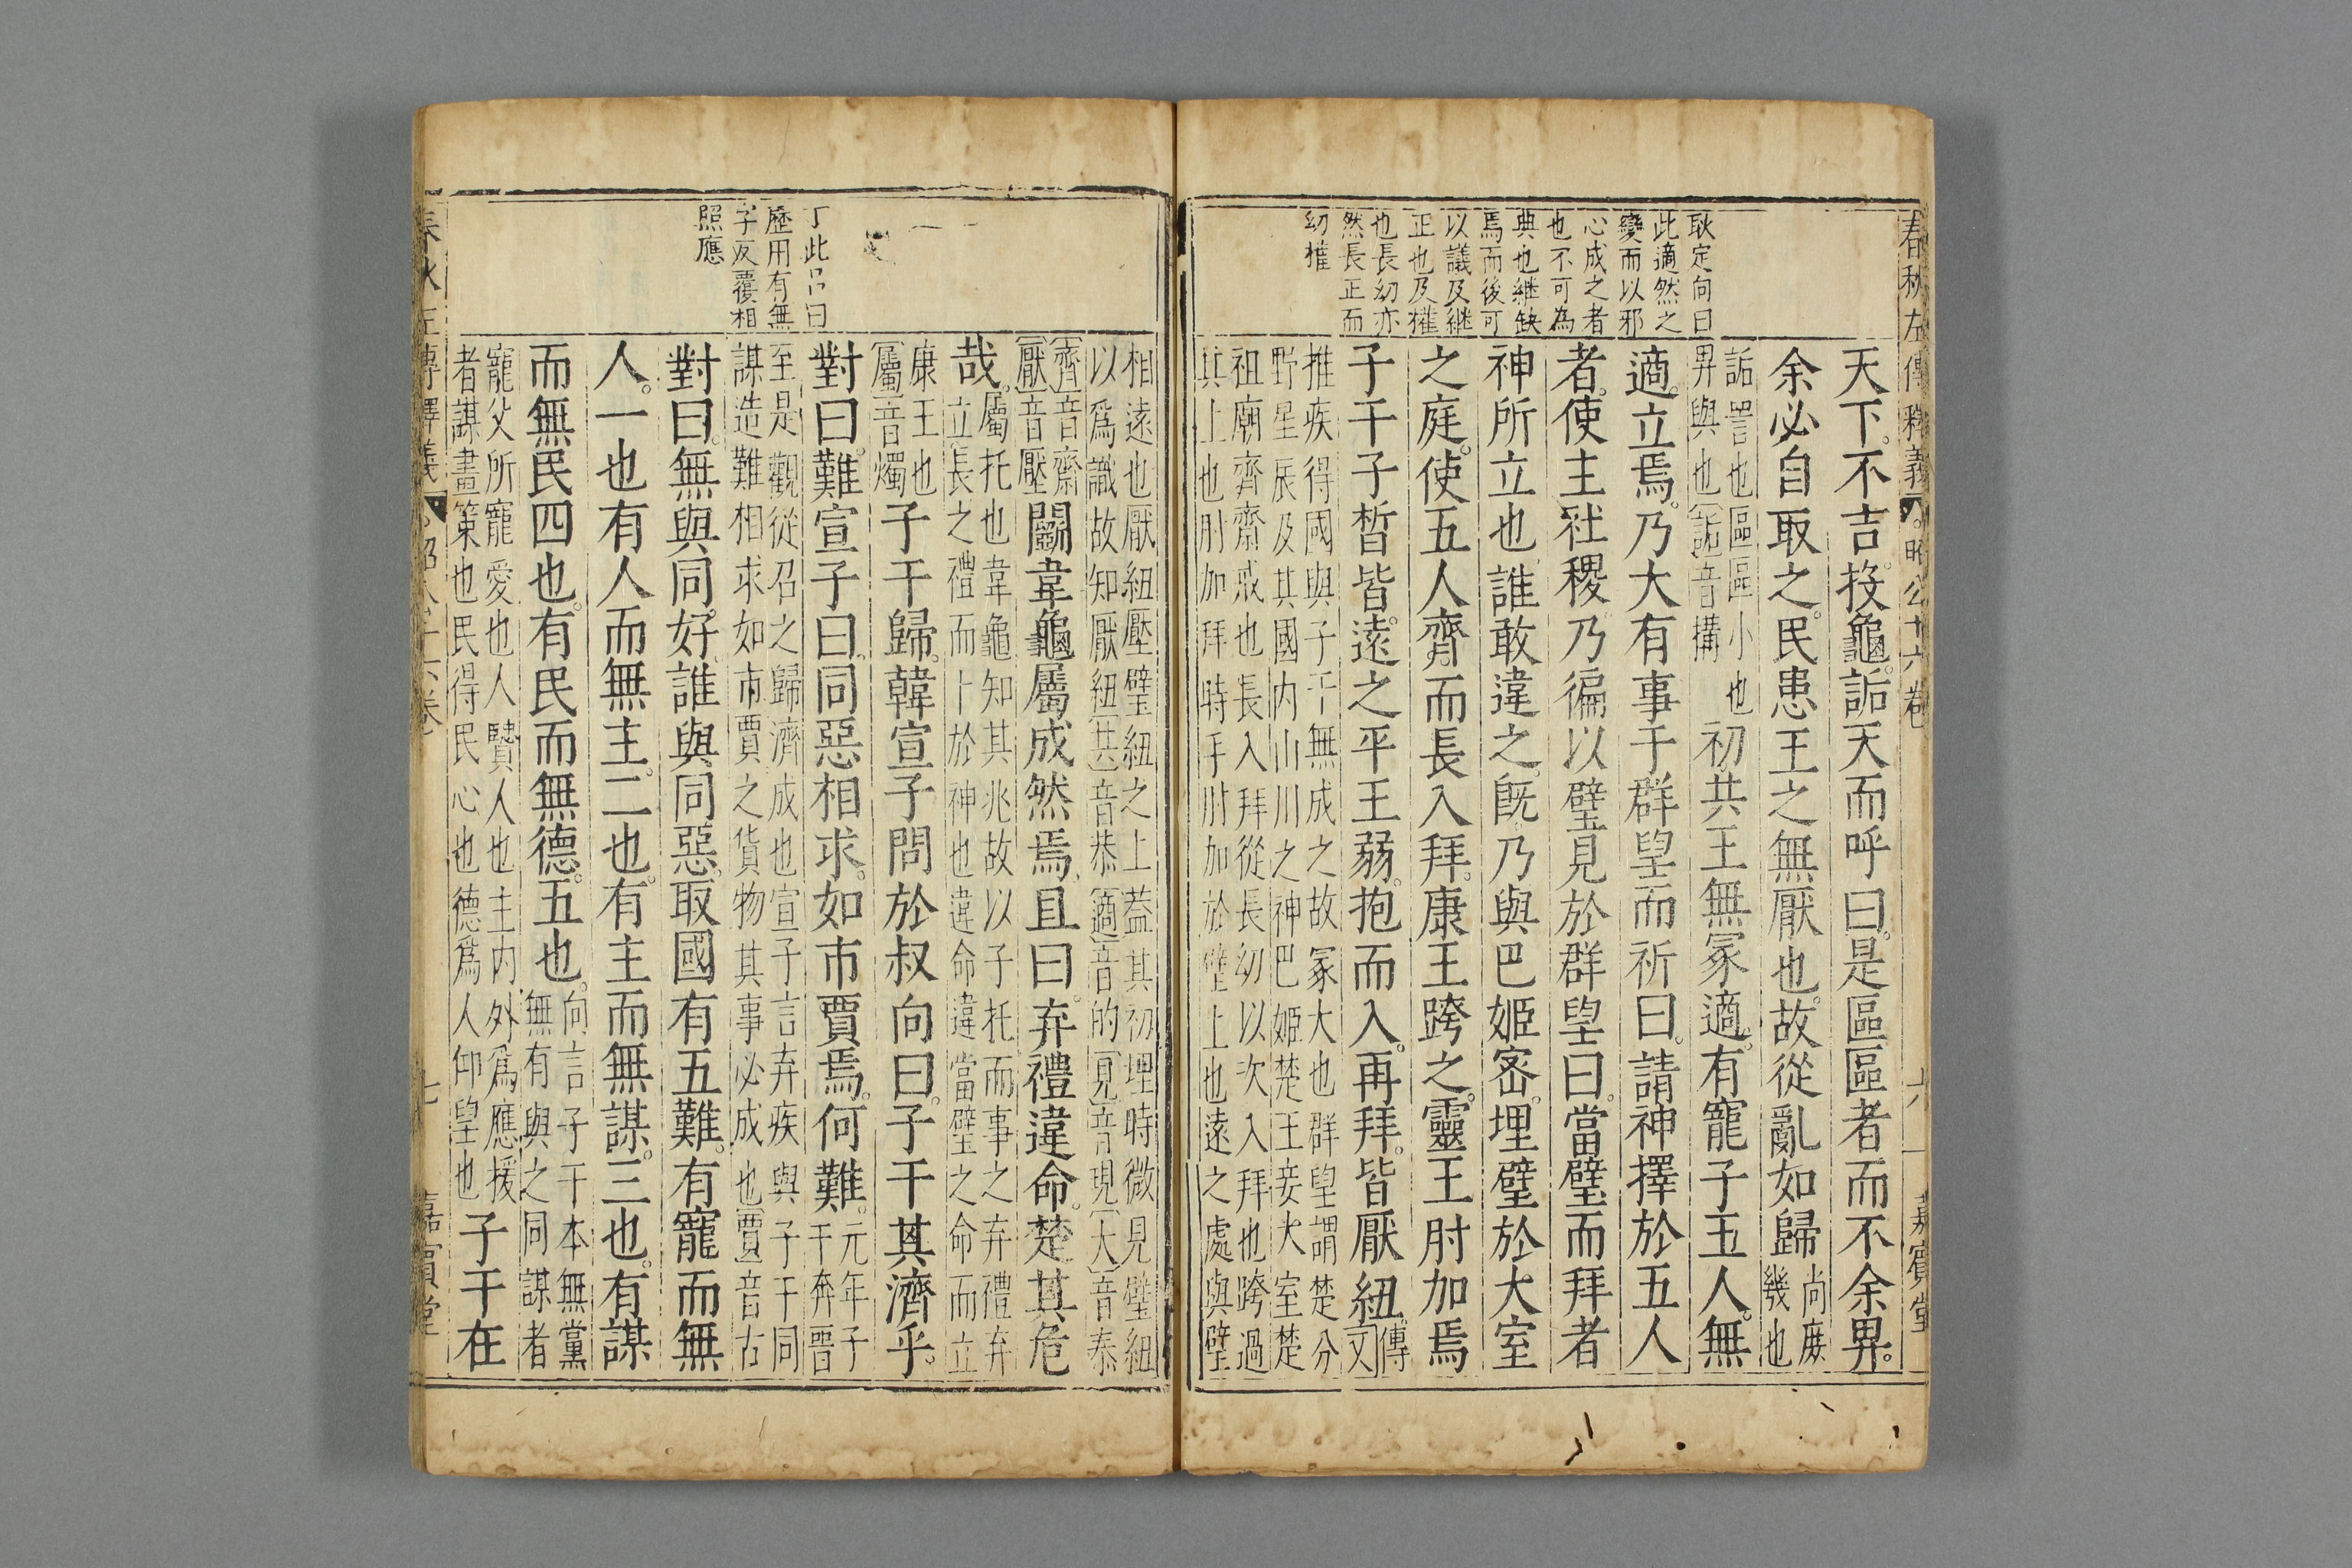 春秋左傳釋義
昭公十六卷
六
嘉賓堂
耿定向曰
此適然之
變而以邪
心成之者
也不可為
典也継缺
焉而後可
以議及継
正也及權
也長幼亦
然長正而
幼權
天下不吉投龜詬天而呼曰是區區者而不余畀
余必自取之民患王之無厭也故從亂如歸
尚庶
幾也
詬詈也區區小也
畀與也詬音搆
初共王無冢適有寵子五人無
適立焉乃大有事于群望而祈曰請神擇於五人
者使主社稷乃徧以璧見於群望曰當璧而拜者
神所立也誰敢違之既乃與巴姬密埋璧於大室
之庭使五人齊而長入拜康王跨之靈王肘加焉
子干子晳皆遠之平王弱抱而入再拜皆厭紐
傳
文
推疾得國與子干無成之故冢大也群望謂楚分
野星辰及其國内山川之神巴姬楚王妾大室楚
祖廟齊齋戒也長入拜從長幼以次入拜也跨過
其上也肘加拜時手肘加於璧上也遠之處與璧
相遠也厭紐壓璧紐之上蓋其初埋時微見璧紐
以爲識故知厭紐共音恭適音的見音現大音泰
齊音齋
厭音壓
鬬韋龜屬成然焉且曰弃禮違命楚其危
哉
屬托也韋龜知其兆故以子托而事之弃禮弃
立長之禮而卜於神也違命違當璧之命而立
康王也
屬音燭
子干歸韓宣子問於叔向曰子干其濟乎
對曰難宣子曰同惡相求如市賈焉何難
元年子
干奔晋
至是觀從召之歸濟成也宣子言弃疾與子干同
謀造難相求如市賈之貨物其事必成也賈音古
對曰無與同好誰與同惡取國有五難有寵而無
人一也有人而無主二也有主而無謀三也有謀
而無民四也有民而無德五也
向言子干本無黨
無有與之同謀者
寵父所寵愛也人賢人也主内外爲應援
者謀畫策也民得民心也德爲人仰望也
子干在
曰
歷用有無
字反覆相
照應
七
嘉賓堂